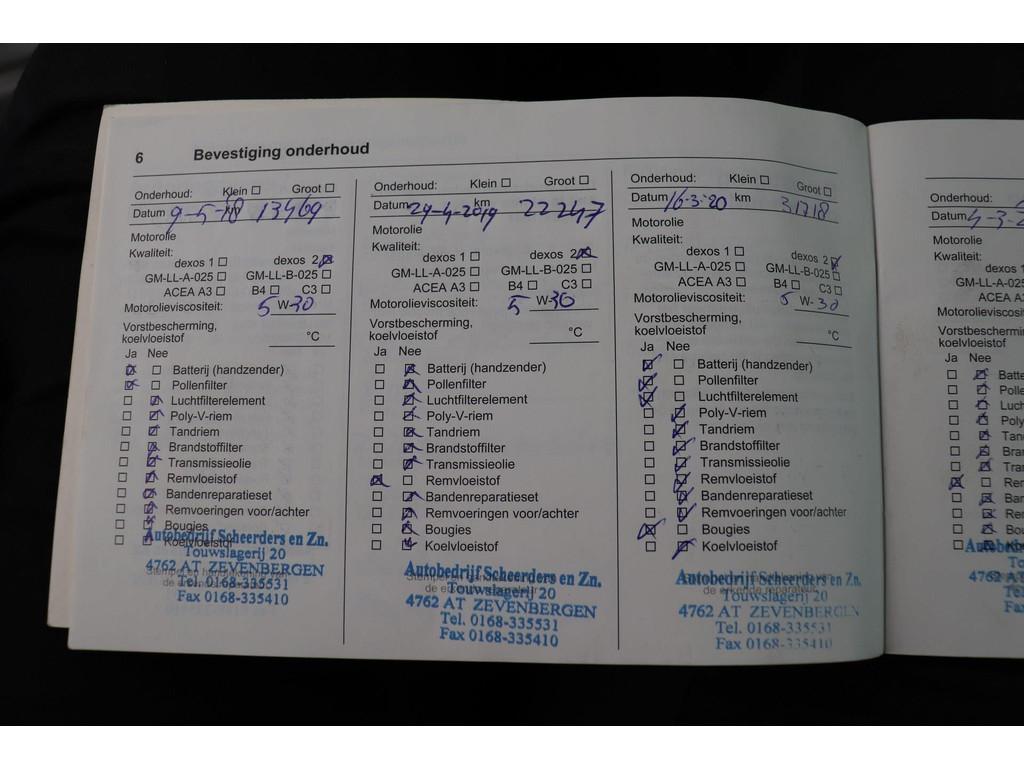 6 Bevestiging onderhoud
Onderhoud: Klein Groot
Datum 9-5-18 km 13469
Motorolie
Kwaliteit:
dexos 1 dexos 2
GM-LL-A-025 GM-LL-B-025
ACEA A3 B4 C3
Motorolieviscositeit: 5 W-30
Vorstbescherming,
koelvloeistof °C
Ja Nee
Batterij (handzender)
Pollenfilter
Luchtfilterelement
Poly-V-riem
Tandriem
Brandstoffilter
Transmissieolie
Remvloeistof
Bandenreparatieset
Remvoeringen voor/achter
Bougies
Koelvloeistof
Autobedrijf Scheerders en Zn.
Touwslagerij 20
4762 AT ZEVENBERGEN
Tel. 0168-335531
Fax 0168-335410
Onderhoud: Klein Groot
Datum 29-4-2019 km 22247
Motorolie
Kwaliteit:
dexos 1 dexos 2
GM-LL-A-025 GM-LL-B-025
ACEA A3 B4 C3
Motorolieviscositeit: 5 W-30
Vorstbescherming,
koelvloeistof °C
Ja Nee
Batterij (handzender)
Pollenfilter
Luchtfilterelement
Poly-V-riem
Tandriem
Brandstoffilter
Transmissieolie
Remvloeistof
Bandenreparatieset
Remvoeringen voor/achter
Bougies
Koelvloeistof
Autobedrijf Scheerders en Zn.
Touwslagerij 20
4762 AT ZEVENBERGEN
Tel. 0168-335531
Fax 0168-335410
Onderhoud: Klein Groot
Datum 16-3-20 km 31718
Motorolie
Kwaliteit:
dexos 1 dexos 2
GM-LL-A-025 GM-LL-B-025
ACEA A3 B4 C3
Motorolieviscositeit: 5 W-30
Vorstbescherming,
koelvloeistof °C
Ja Nee
Batterij (handzender)
Pollenfilter
Luchtfilterelement
Poly-V-riem
Tandriem
Brandstoffilter
Transmissieolie
Remvloeistof
Bandenreparatieset
Remvoeringen voor/achter
Bougies
Koelvloeistof
Autobedrijf Scheerders en Zn.
de erkende reparateur
Touwslagerij 20
4762 AT ZEVENBERGEN
Tel. 0168-335531
Fax 0168-335410
Onderhoud:
Datum 4-3-2
Motorolie
Kwaliteit:
dexos 1
GM-LL-A-025
ACEA A3
Motorolieviscositeit
Vorstbeschermin
koelvloeistof
Ja Nee
Batte
Polle
Luch
Poly
Tan
Bra
Tra
Rer
Ba
Re
Bo
Autobed
4762 A
Te
Fa